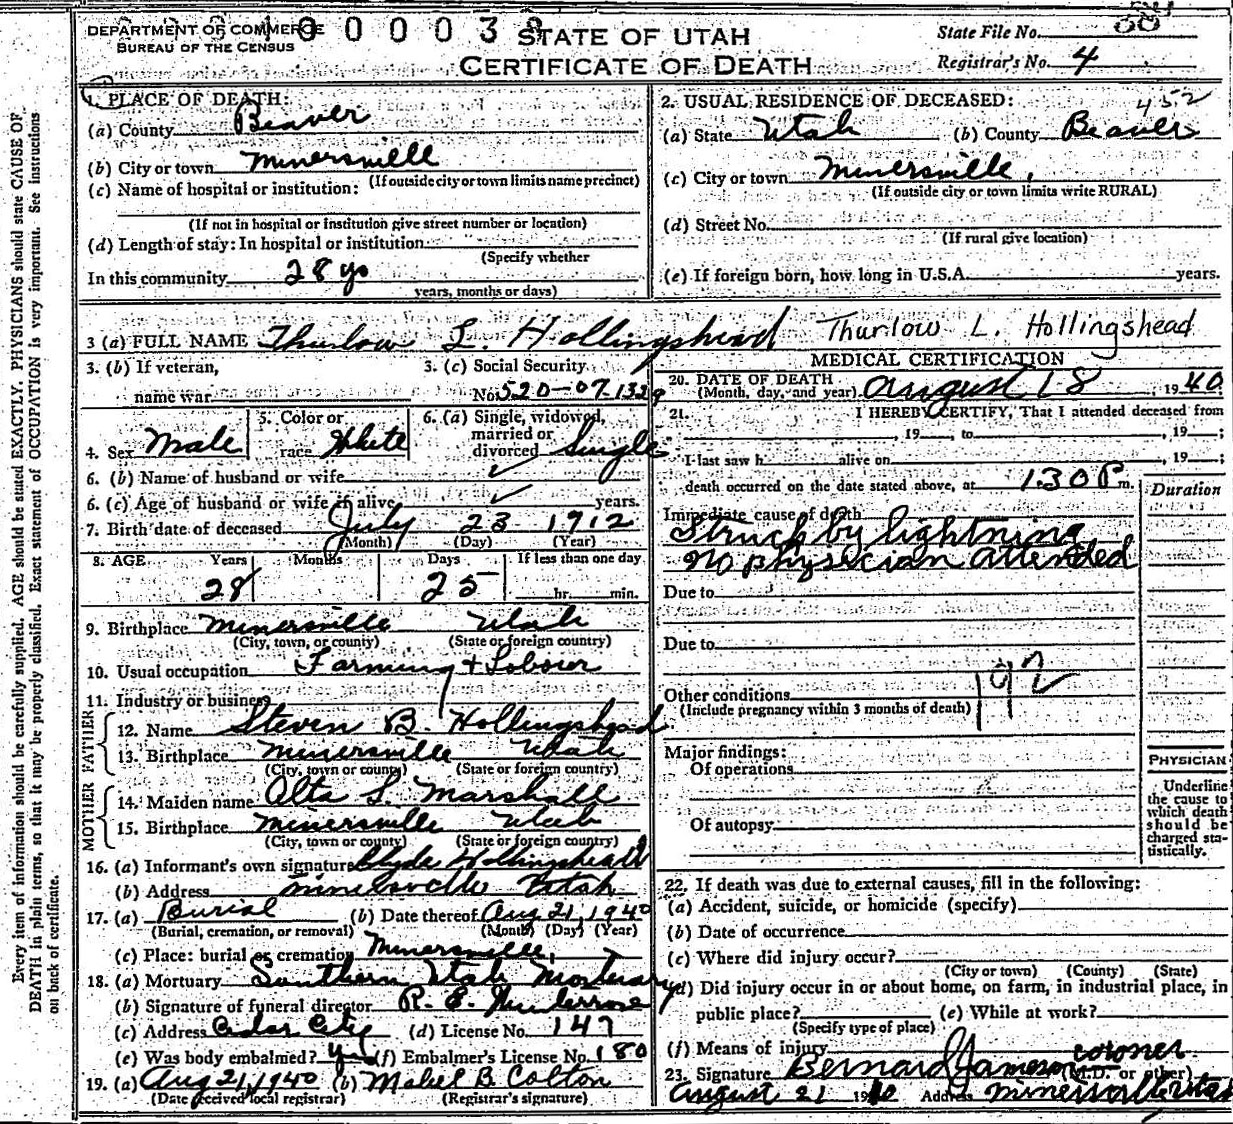 DEPARTMENT OF COMMERCE
BUREAU OF THE CENSUS
STATE OF UTAH
CERTIFICATE OF DEATH
State File No.
Registrar's No. 4
1. PLACE OF DEATH:
(a) County Beaver
(b) City or town Minersville
(If outside city or town limits name precinct)
(c) Name of hospital or institution:
(If not in hospital or institution give street number or location)
(d) Length of stay: In hospital or institution
(Specify whether
In this community 28 yo
years, months or days)
2. USUAL RESIDENCE OF DECEASED: 452
(a) State Utah (b) County Beaver
(c) City or town Minersville,
(If outside city or town limits write RURAL)
(d) Street No.
(If rural give location)
(e) If foreign born, how long in U.S.A. years.
3 (a) FULL NAME Thurlow L. Hollingshead Thurlow L. Hollingshead
3. (b) If veteran,
name war
3. (c) Social Security
No. 520-07-1329
4. Sex Male
5. Color or
race White
6. (a) Single, widowed,
married or
divorced Single
6. (b) Name of husband or wife ✓
6. (c) Age of husband or wife if alive ✓ years.
7. Birth date of deceased July 23 1912
(Month) (Day) (Year)
8. AGE Years Months Days If less than one day
28 25 hr. min.
9. Birthplace Minersville Utah
(City, town, or county) (State or foreign country)
10. Usual occupation Farming + Labourer
11. Industry or business
FATHER
12. Name Steven B. Hollingshead
13. Birthplace Minersville Utah
(City, town or county) (State or foreign country)
MOTHER
14. Maiden name Alta L. Marshall
15. Birthplace Minersville Utah
(City, town or county) (State or foreign country)
16. (a) Informant's own signature Clyde Hollingshead
(b) Address Minersville Utah
17. (a) Burial (b) Date thereof Aug 21, 1940
(Burial, cremation, or removal) (Month) (Day) (Year)
(c) Place: burial or cremation Minersville,
18. (a) Mortuary Southern Utah Mortuary
(b) Signature of funeral director R. E.
(c) Address Cedar City (d) License No. 147
(e) Was body embalmed? yes (f) Embalmer's License No. 180
19. (a) Aug 21, 1940 (b) Mabel B. Colton
(Date received local registrar) (Registrar's signature)
MEDICAL CERTIFICATION
20. DATE OF DEATH
(Month, day, and year) August 18, 1940
21. I HEREBY CERTIFY, That I attended deceased from
, 19 , to , 19 ;
I last saw h alive on , 19 ;
death occurred on the date stated above, at 1:30 P m.
Duration
Immediate cause of death
Struck by lightning
No physician attended
Due to
Due to
Other conditions
(Include pregnancy within 3 months of death)
192
Major findings:
Of operations
Of autopsy
PHYSICIAN
Underline
the cause to
which death
should be
charged sta-
tistically.
22. If death was due to external causes, fill in the following:
(a) Accident, suicide, or homicide (specify)
(b) Date of occurrence
(c) Where did injury occur?
(City or town) (County) (State)
(d) Did injury occur in or about home, on farm, in industrial place, in
public place? (e) While at work?
(Specify type of place)
(f) Means of injury
23. Signature Bernard Jameson coroner
(M.D. or other)
August 21 1940 Address Minersville Utah
Every item of information should be carefully supplied. AGE should be stated EXACTLY. PHYSICIANS should state CAUSE OF
DEATH in plain terms, so that it may be properly classified. Exact statement of OCCUPATION is very important. See instructions
on back of certificate.